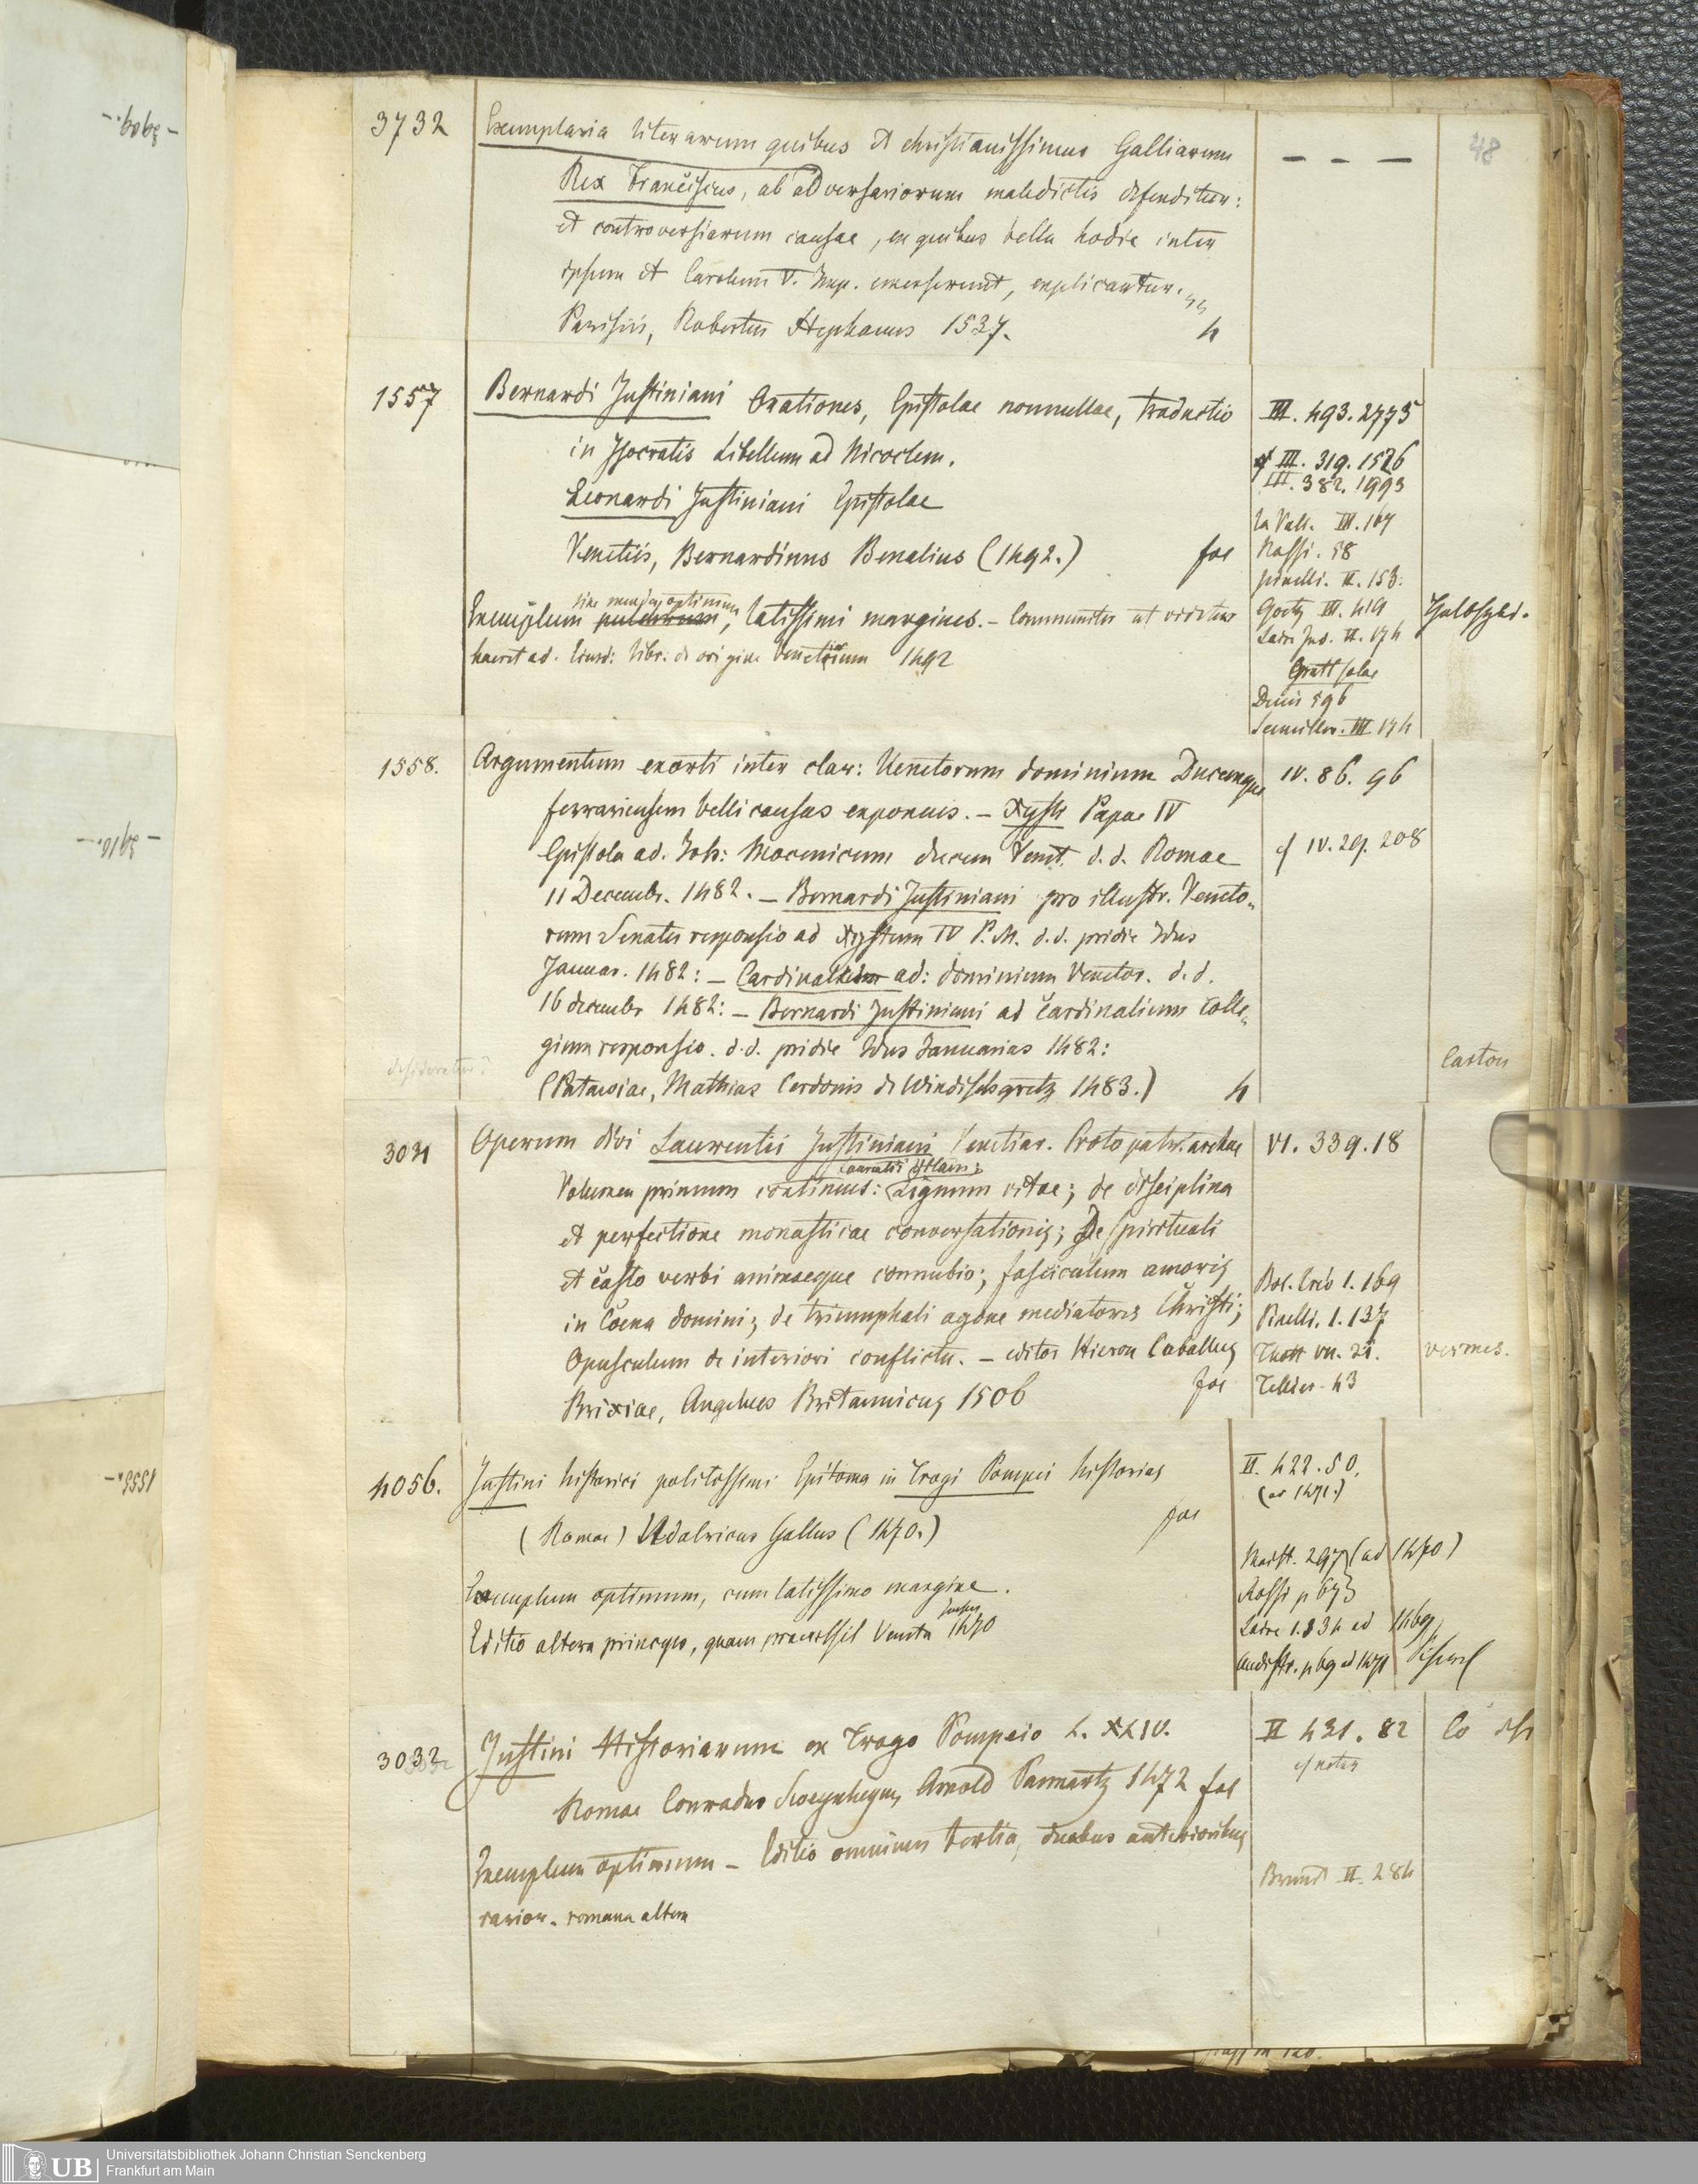 48
3732 Exemplaria literarum quibus et christianissimus Galliarum - - -
Rex Franciscus, ab adversariorum maledictis defenditur:
et controversiarum causae, ex quibus bella hodie inter
ipsum et Carolum V. Imp. emerserunt, explicantur.
Parisiis, Robertus Stephanus 1537. 4
1557 Bernardi Justiniani Orationes, Epistolae nonnullae, traductio III. 493. 2775
in Isocratis Libellum ad Nicoclem. cf III. 319. 1526
III. 382. 1993
Leonardi Justiniani Epistolae
La Vall. III. 167
Venetiis, Bernardinus Benalius (1492.) fol Rossi. 58
Pinelli. II. 153.
sine menda, optimum
Exemplum pulchrum, latissimi margines. - Communiter ut videtur Goetz III. 419 Halbfzbd.
haeret ad. Eiusd: libr. de origine Venetiarum 1492
Denis 596
Seemiller. III. 174
1558. Argumentum exorti inter clar: Venetorum dominium Ducemque IV. 86. 96
ferrariensem belli causas exponens. - Xysti Papae IV
Epistola ad. Joh: Mocenicum ducem Venet. d. d. Romae cf IV. 29. 208
11 Decembr. 1482. - Bernardi Justiniani pro illustr. Veneto-
rum Senatu responsio ad Xystum IV P. M. d. d. pridie Idus
Januar. 1482: - Cardinalium ad: dominium Venetor. d. d.
16 decembr 1482: - Bernardi Justiniani ad Cardinalium Colle-
gium responsio. d. d. pridie Idus Januarias 1482:
desideratur? Carton
(Pataviae, Mathias Cerdonis de Windischgretz 1483.) 4
3031 Operum divi Laurentii Justiniani Venetiar. Protopatriarchae VI. 339. 18
Volumen primum continens: Lignum vitae; de disciplina
et perfectione monasticae conversationis; De spirituali
et casto verbi animaeque connubio; fasciculum amoris
in Coena domini; de triumphali agone mediatoris Christi; Pinelli. 1. 137
Opusculum de interiori conflictu. - editor Hieron Caballus Thott VII. 21. vermes.
Brixiae, Angelus Britannicus 1506 fol Tellier. 43
4056. Justini historici politissimi Epitoma in Trogi Pompei historias II. 422. 50.
(ad 1471.)
(Romae) Udalricus Gallus (1470.) fol
297 (ad 1470)
Exemplum optimum, cum latissimo margine. Rossi p 67
Jenson
Editio altera princeps, quam praecessit Veneta 1470
Audiffr. p 69 ad 1471
3032 Justini Historiarum ex Trogo Pompeio L. XLIV. II 431. 82
cf notas
Romae Conradus Sweynheym, Arnold Pannartz 1472 fol
Exemplum optimum - Editio omnium tertia, duabus anterioribus
Brunet II. 284
rarior. romana altera
- 3909. -
- 3910. -
1555. -
UB Universitätsbibliothek Johann Christian Senckenberg
Frankfurt am Main